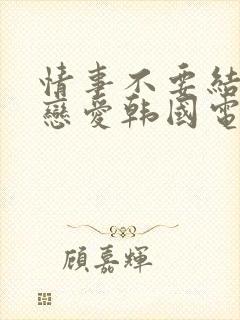 情事不要結
戀愛韩國電
顧嘉輝